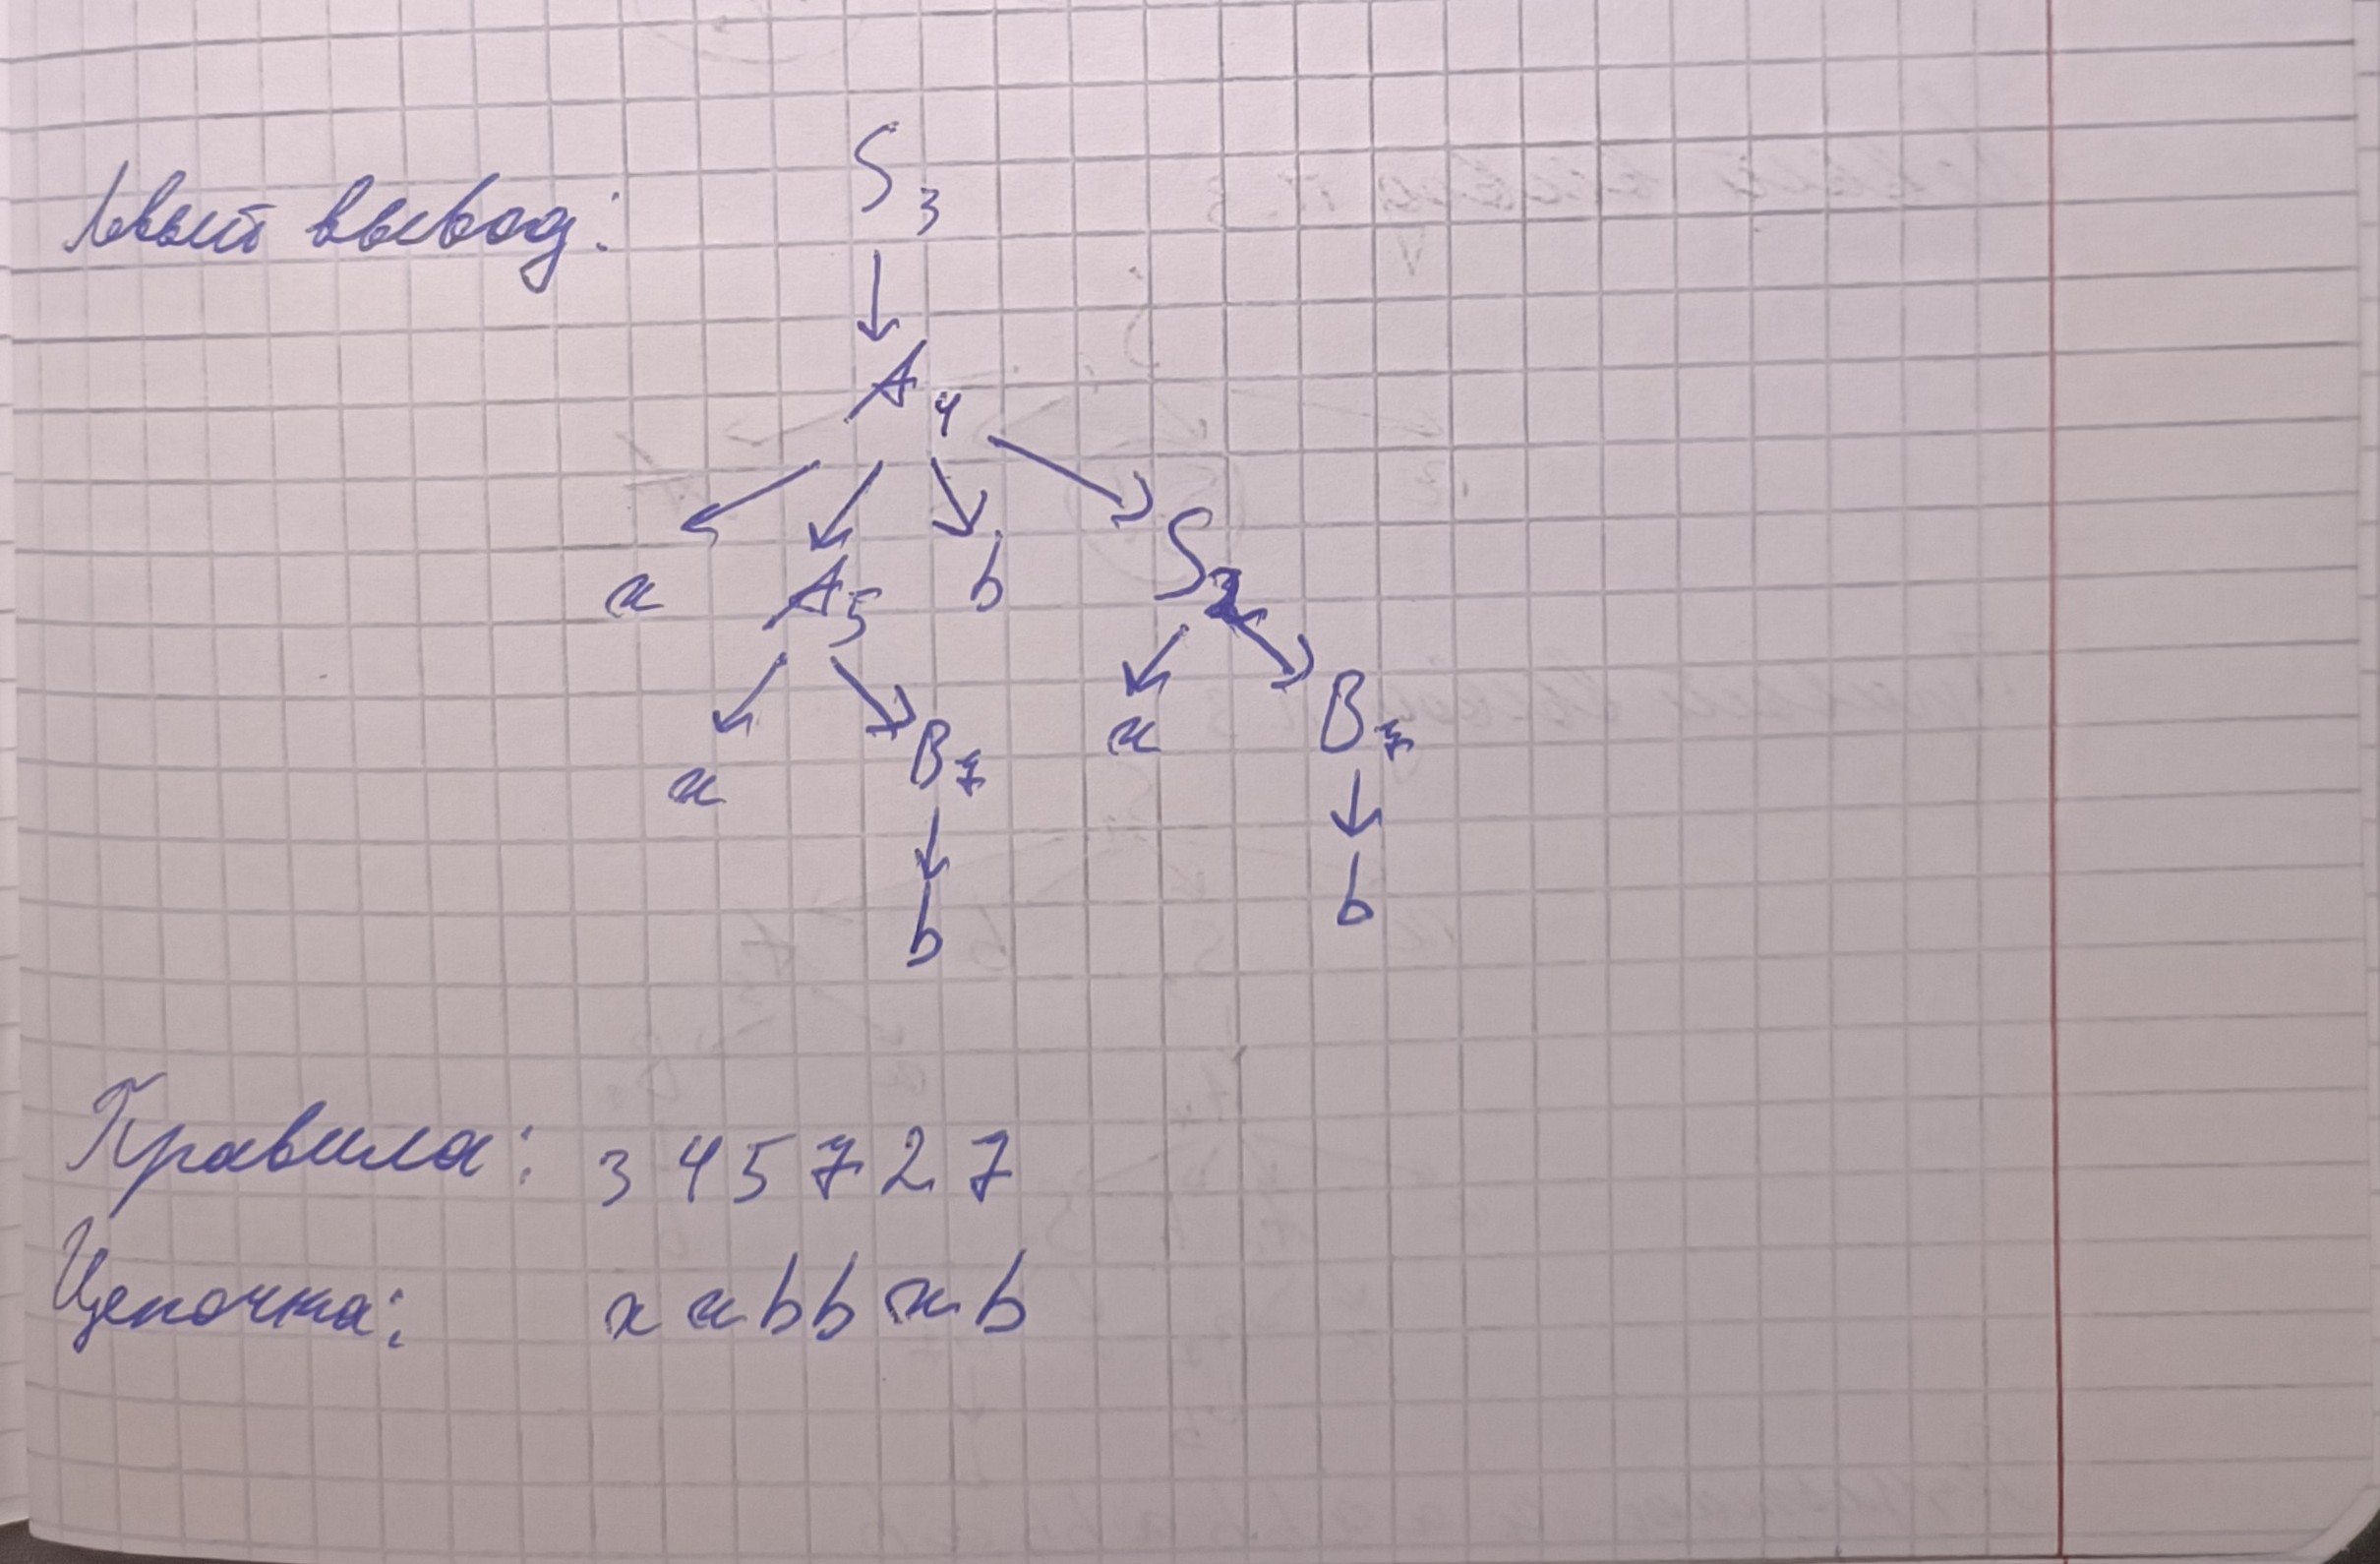 Левый вывод:
S3
A4
a A5 b S2
a B7 a B7
b b
Правила: 3 4 5 7 2 7
Цепочка: a a b b a b